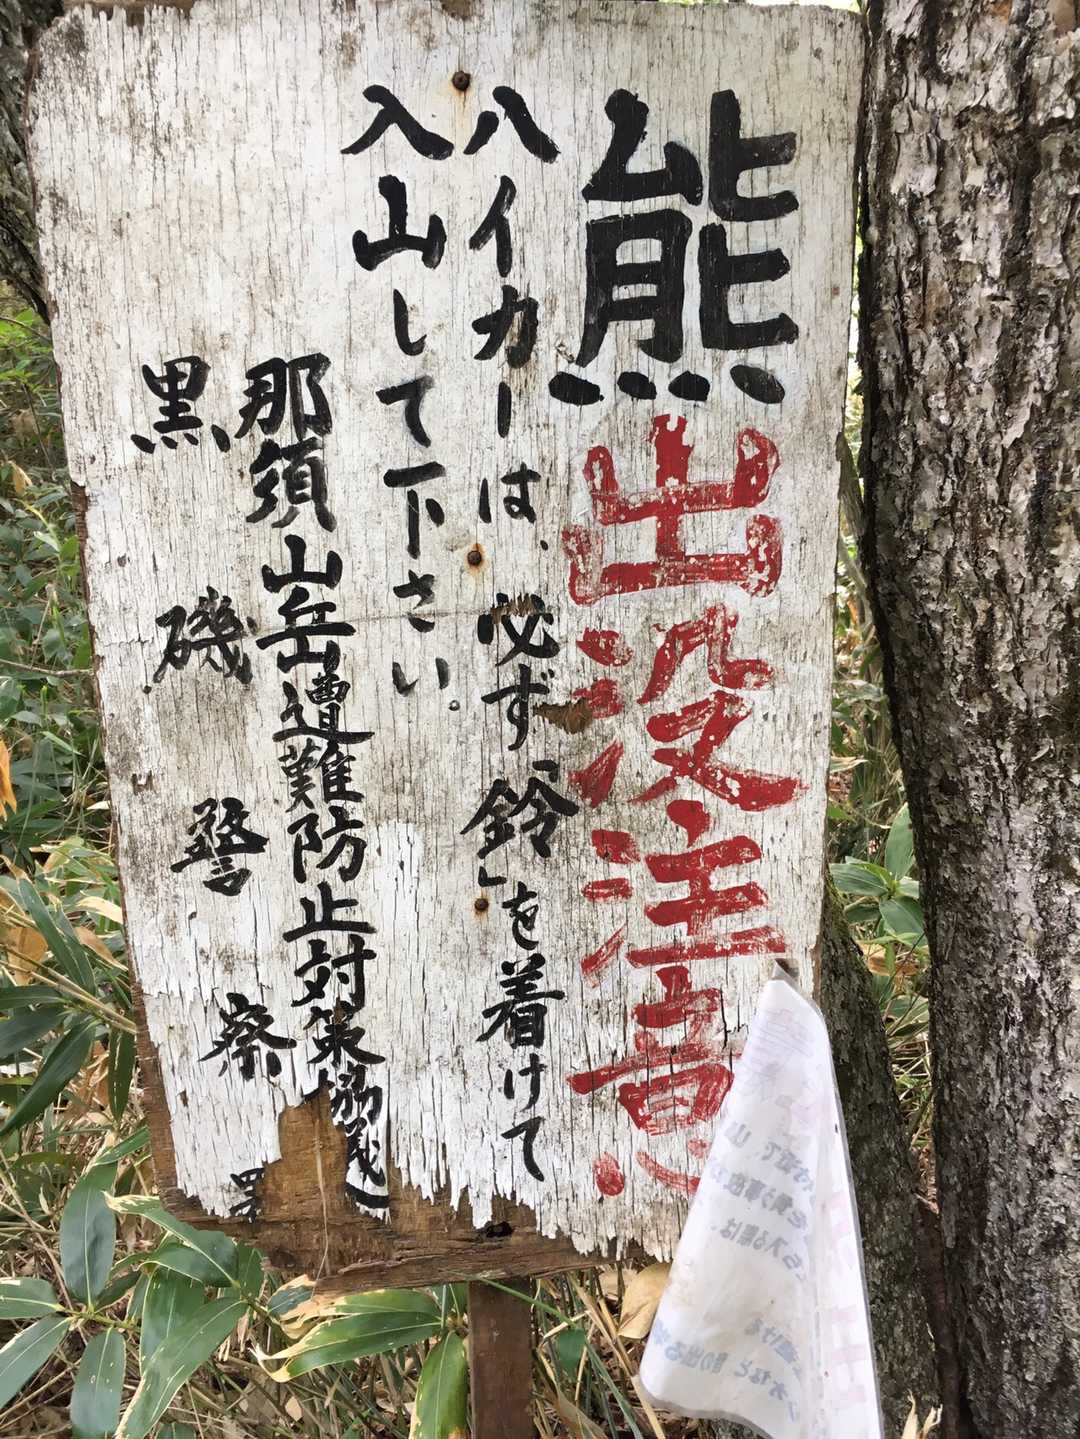 熊出没注意
ハイカーは必ず「鈴」を着けて
入山して下さい。
那須山岳遭難防止対策協議
黒磯警察